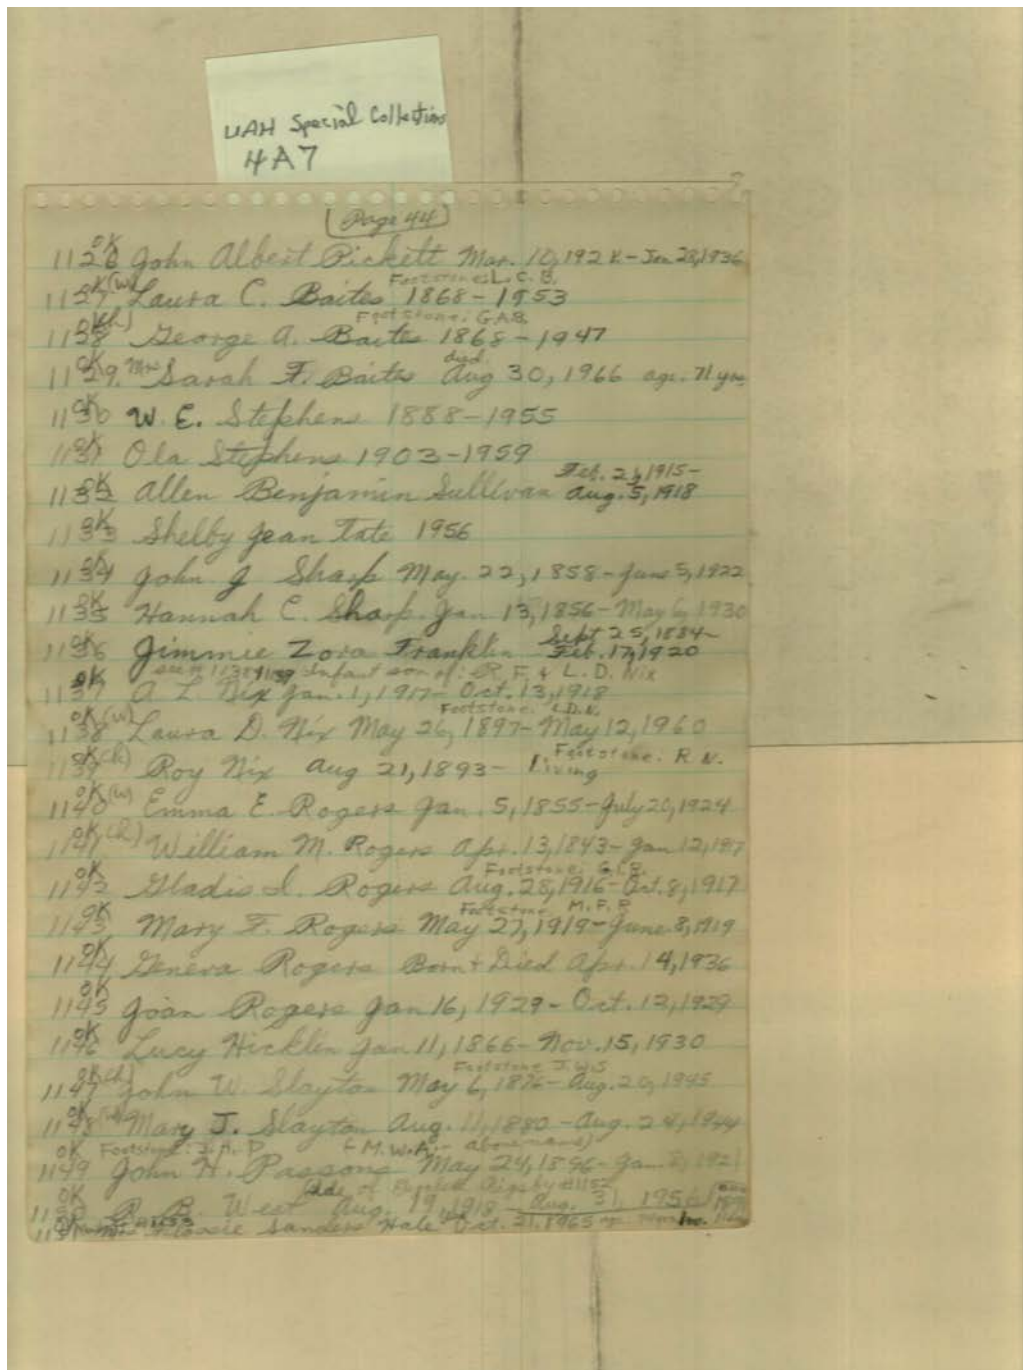 UAH Special Collections
4A7
(Page 44)
OK
1126 John Albert Pickett Mar. 10, 192 - Jan 28, 1936
Footstone: L. C. B.
OK (w)
1127 Laura C. Baites 1868-1953
Footstone: G.A.B.
OK (h)
1138 George A. Baites 1868-1947
OK died
1129. Mrs Sarah F. Baites Aug 30, 1966 age. 71 yrs
OK
1130 W. E. Stephens 1888-1955
OK
1131 Ola Stephens 1903-1959
OK Feb. 2, 1915-
1132 Allen Benjamin Sullivan Aug. 5, 1918
OK
1133 Shelby Jean Tate 1956
OK
1134 John J Sharp May. 22, 1858-June 5, 1922
OK
1135 Hannah C. Sharp. Jan 13, 1856-May 6, 1930
OK Sept 25, 1884-
1136 Jimmie Zora Franklin Feb. 17, 1920
OK see # 1138 + 1139 Infant son of: R. F. & L. D. Nix
1137 A. L. Nix Jan. 1, 1917- Oct. 13, 1918
Footstone. L.D.N.
OK (w)
1138 Laura D. Nix May 26, 1897-May 12, 1960
Footstone. R. N.
OK (h)
1139 Roy Nix Aug 21, 1893- Living
OK (w)
1140 Emma E. Rogers Jan. 5, 1855-July 20, 1924
OK (h)
1141 William M. Rogers Apr. 13, 1843-Jan 12, 1917
Footstone. G.I.R.
OK
1142 Gladis I. Rogers Aug. 28, 1916-Oct. 8, 1917
Footstone M. F. R
OK
1143 Mary F. Rogers May 27, 1919-June 8, 1919
OK
1144 Geneva Rogers Born + Died Apr. 14, 1936
OK
1145 Joan Rogers Jan 16, 1929- Oct. 12, 1929
OK
1146 Lucy Hicklen Jan 11, 1866- Nov. 15, 1930
Footstone J.W.S
OK (h)
1147 John W. Slayton May 6, 1876-Aug. 20, 1945
OK (w)
1148 Mary J. Slayton Aug. 11, 1880-Aug. 24, 1944
OK Footstone: J. H. P (M.W.A.- above name)
1149 John H. Passons May 24, 1896-Jan. 1921
OK Side of Rigsby #1152
1150 B. West Aug. 19, 1918 - Aug. 31, 1956
OK #1153
1151 Mrs Sanders Hale Oct. 21, 1965